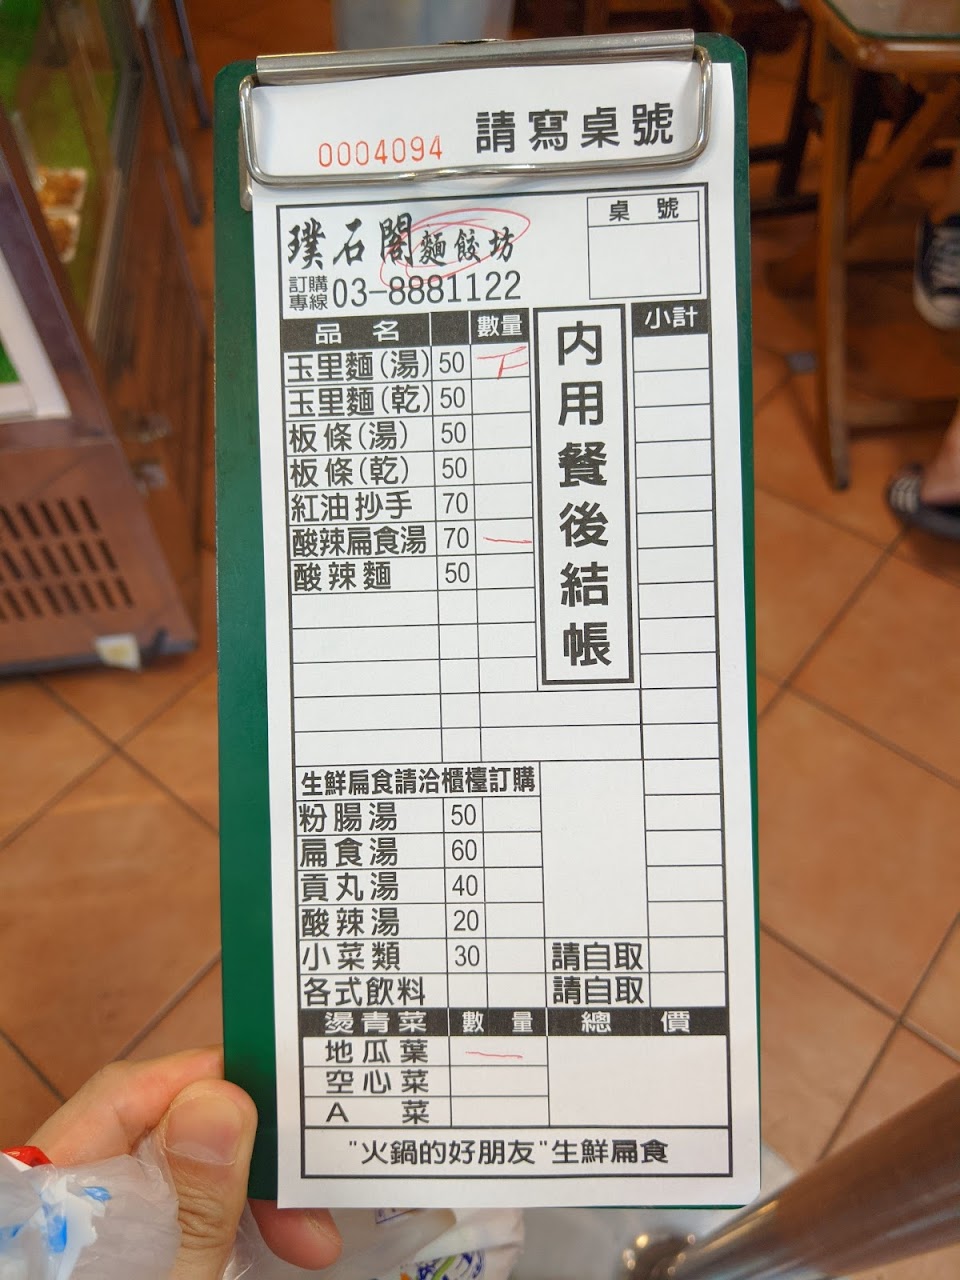 0004094 請寫桌號
璞石閣麵餃坊 桌號
訂購專線 03-8881122
品名 數量 小計
玉里麵(湯) 50 下
玉里麵(乾) 50
板條(湯) 50
板條(乾) 50
紅油抄手 70
酸辣扁食湯 70 一
酸辣麵 50
內用餐後結帳
生鮮扁食請洽櫃檯訂購
粉腸湯 50
扁食湯 60
貢丸湯 40
酸辣湯 20
小菜類 30 請自取
各式飲料 請自取
燙青菜 數量 總價
地瓜葉 一
空心菜
A菜
"火鍋的好朋友"生鮮扁食